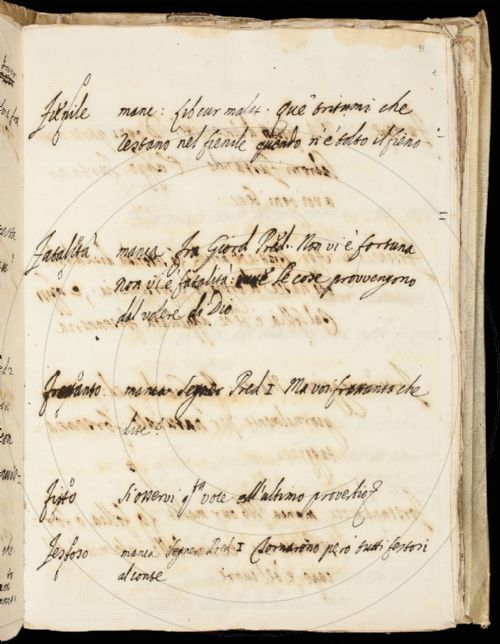 Fienile manc: Lib cur malat. que tritumi che
restano nel fienile quando n'è tolto il fieno
Fatalità manca. fra Giord Pred. Non vi è fortuna
non vi è fatalità: le cose provvengono
dal volere di Dio
Frattanto. manca Segner Pred I Ma voi frattanto che
dite?
Fitto Si osservi q.ta voce all'ultimo proverbio
Festoso manca Segner Pred I Tornarono però tutti festosi
al conte